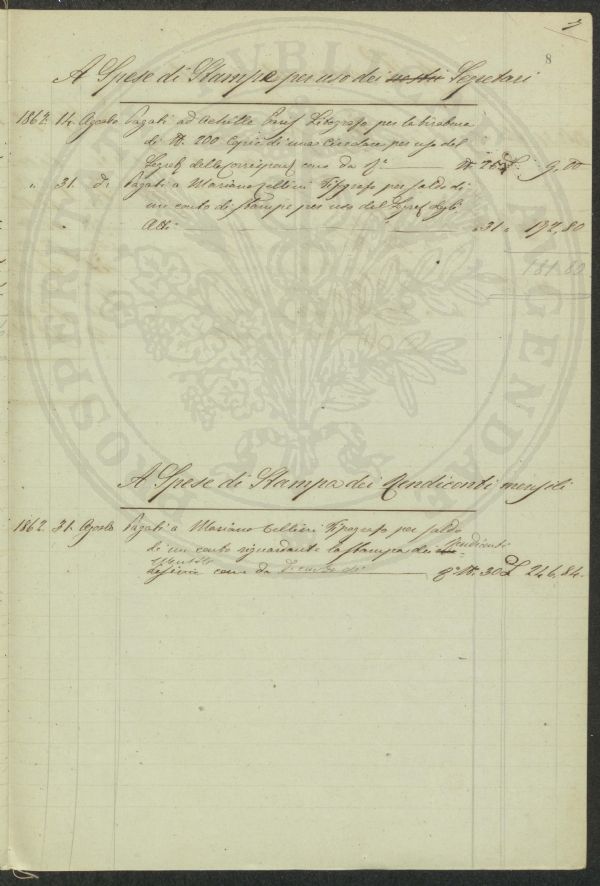 3
8
A Spese di Stampe per uso dei nostri Segretari
1862 14 Agosto Pagati ad Achille litografo per la tiratura
di N. 200 Copie di una Circolare per uso del
Segret della Corrispond come da N. 26 £ 9,00
" 31 do Pagati a Mariano Cellini Tipografo per saldo di
un conto di stampe per uso del Segret degli
Atti " 31 " 172,80
181.80
A Spese di Stampa dei Rendiconti mensili
1862 31 Agosto Pagati a Mariano Cellini Tipografo per saldo
di un conto riguardante la stampa dei Rendiconti
come da N. 30 £ 246,84
PVBLICAE
PROSPERITATI
AVGENDAE